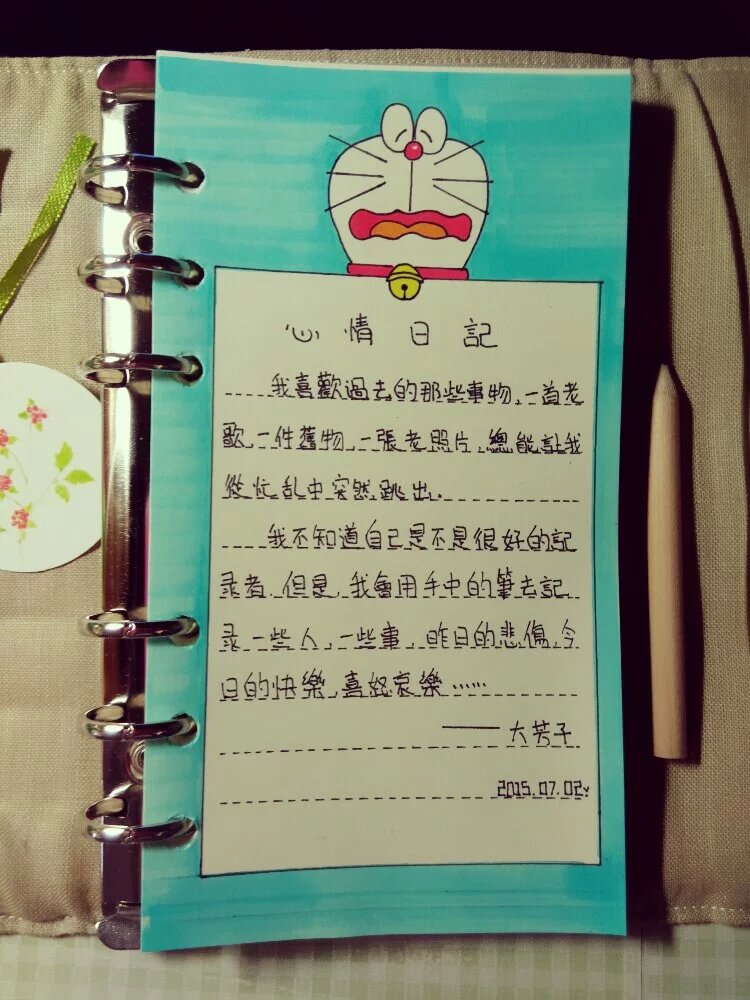 心情日記
我喜歡過去的那些事物,一首老
歌,一件舊物,一張老照片,總能让我
從忙乱中突然跳出.
我不知道自己是不是很好的記
录者.但是,我會用手中的筆去記
录一些人,一些事,昨日的悲傷,今
日的快樂,喜怒哀樂……
——大芳子
2015.07.02